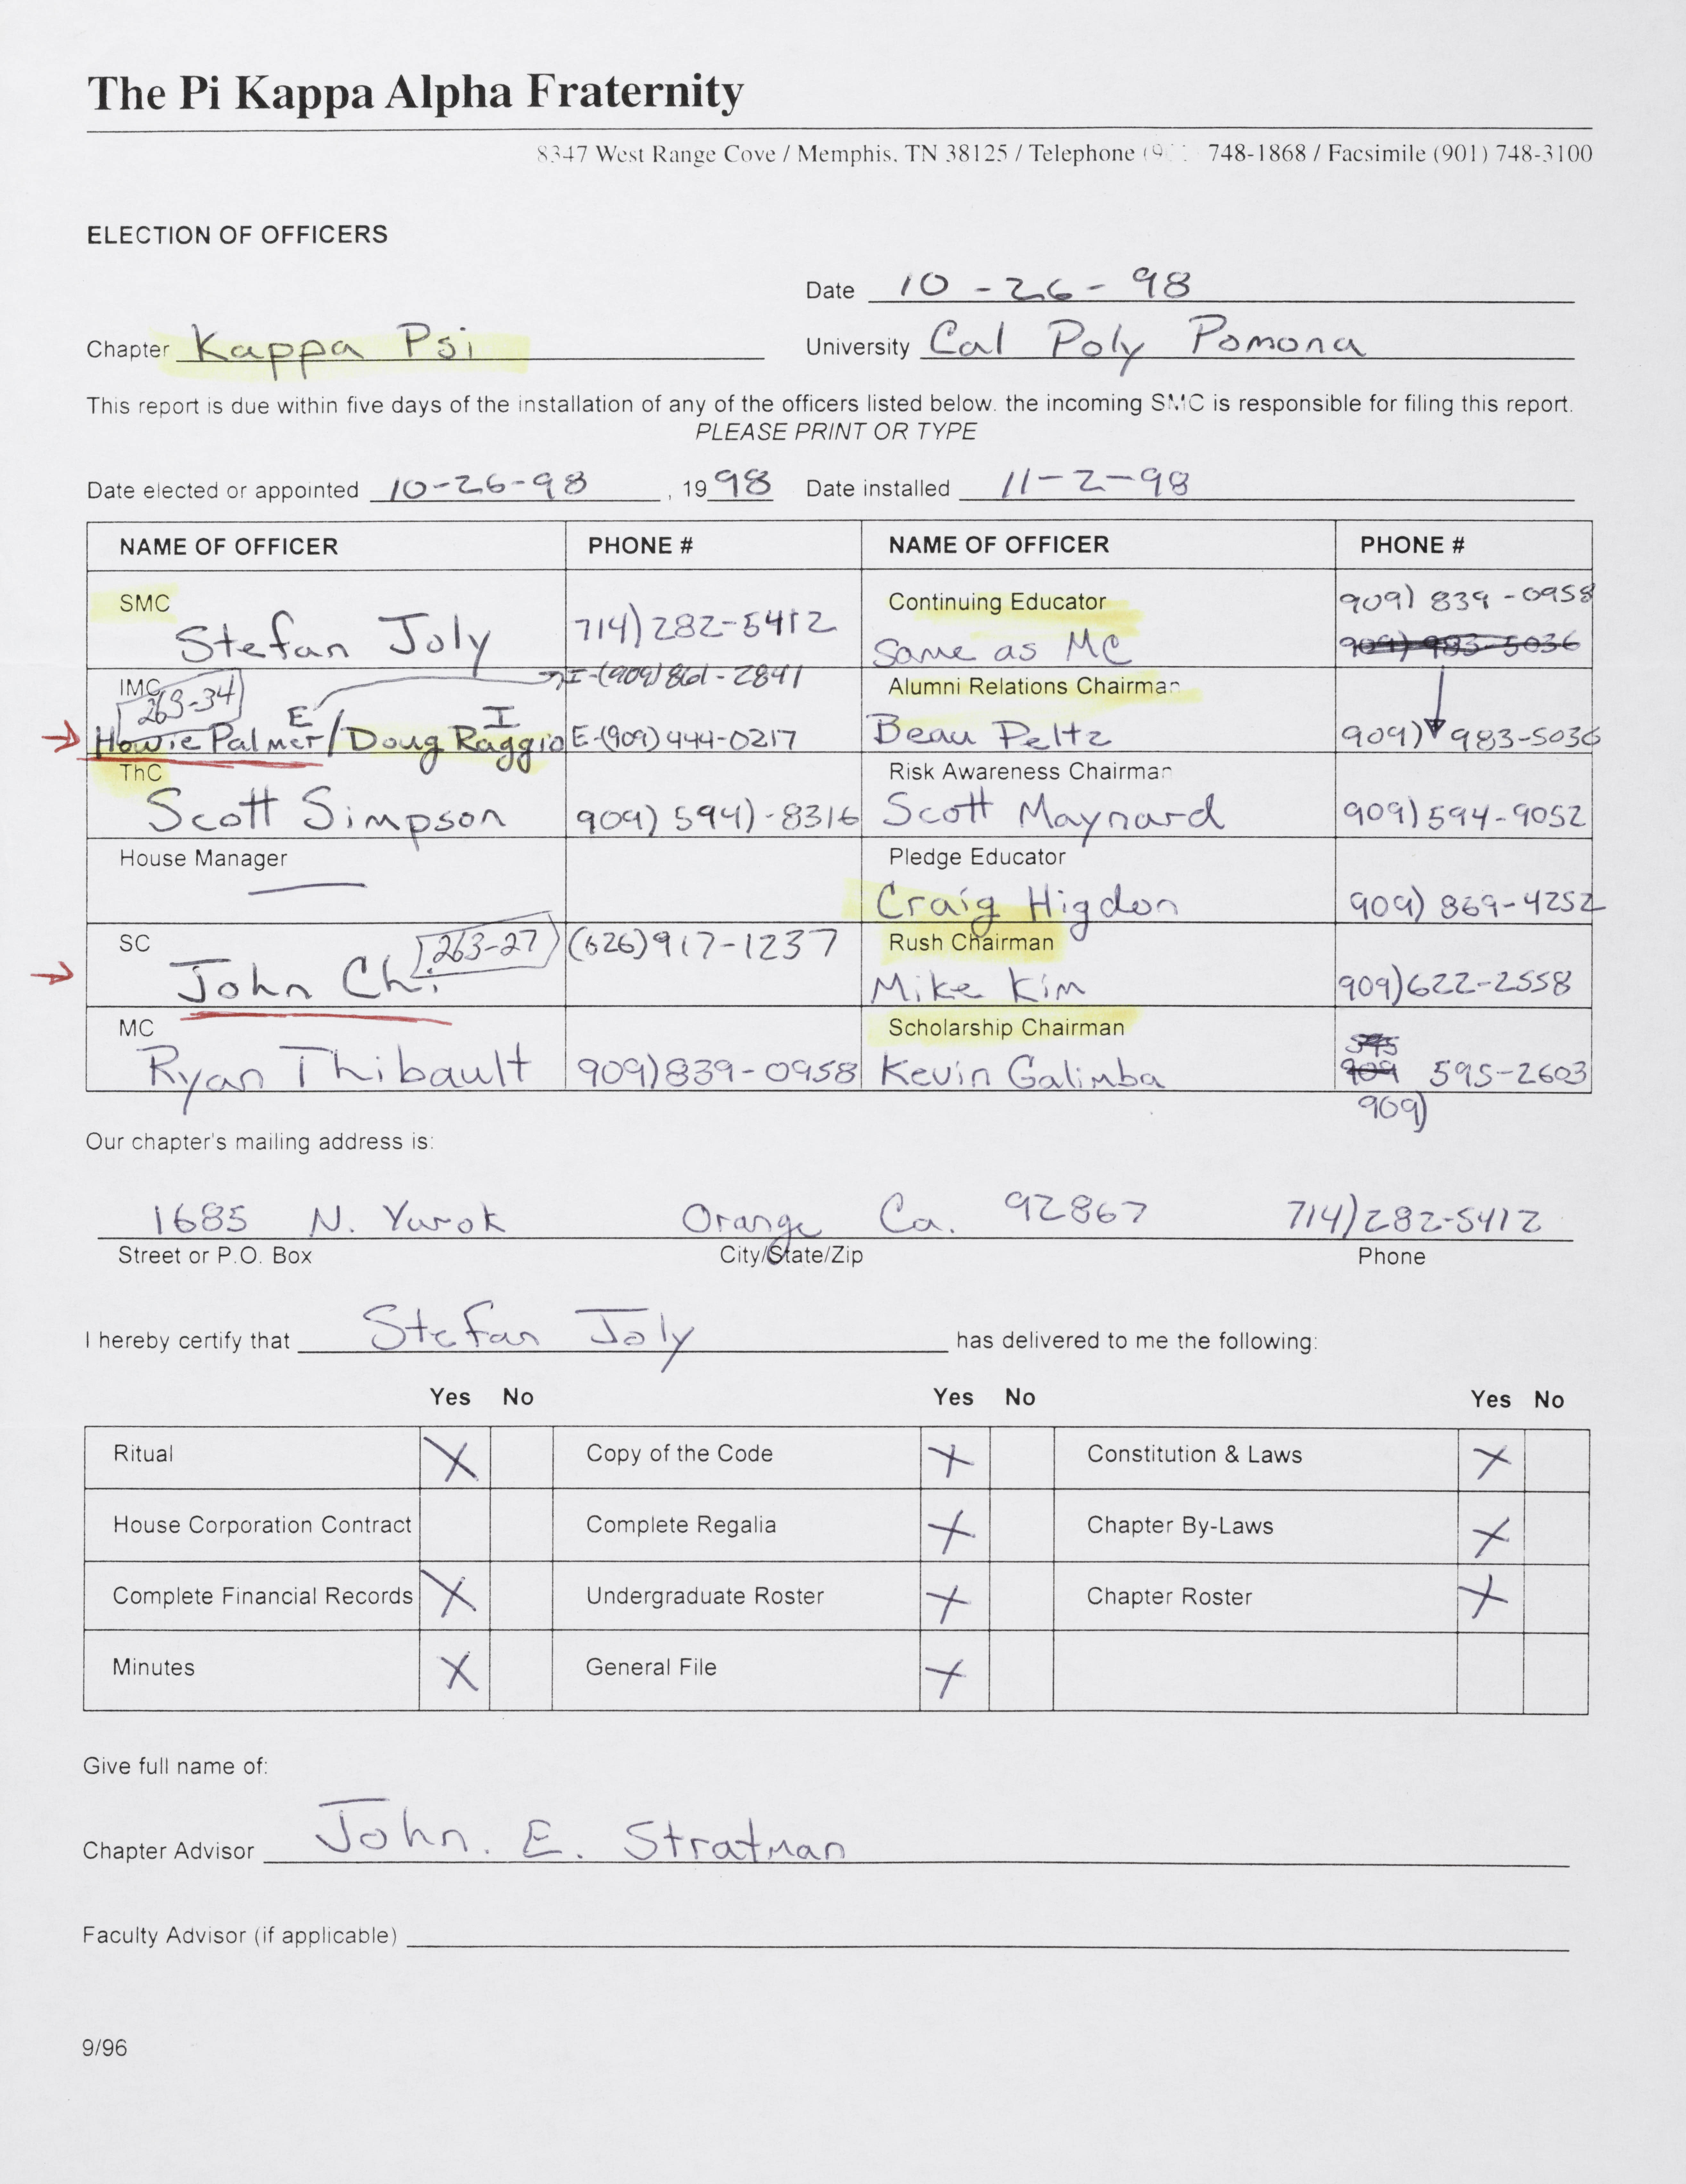 The Pi Kappa Alpha Fraternity
8347 West Range Cove / Memphis, TN 38125 / Telephone (9 748-1868 / Facsimile (901) 748-3100
ELECTION OF OFFICERS
Date 10-26-98
Chapter Kappa Psi University Cal Poly Pomona
This report is due within five days of the installation of any of the officers listed below. the incoming SMC is responsible for filing this report.
PLEASE PRINT OR TYPE
Date elected or appointed 10-26-98, 1998 Date installed 11-2-98
NAME OF OFFICER PHONE # NAME OF OFFICER PHONE #
SMC Continuing Educator 909) 839-0958
Stefan Joly 714) 282-5412 Same as MC 909) 983-5036
IMC 263-34 I-(909) 861-2841 Alumni Relations Chairman
E I
Howie Palmer/Doug Raggio E-(909) 444-0217 Beau Peltz 909) 983-5036
ThC Risk Awareness Chairman
Scott Simpson 909) 594)-8316 Scott Maynard 909) 594-9052
House Manager Pledge Educator
Craig Higdon 909) 869-4252
SC 263-27 (626) 917-1237 Rush Chairman
John Chi Mike Kim 909) 622-2558
MC Scholarship Chairman 595
Ryan Thibault 909) 839-0958 Kevin Galimba 909 595-2603
909)
Our chapter's mailing address is:
1685 N. Yurok Orange Ca. 92867 714) 282-5412
Street or P.O. Box City/State/Zip Phone
I hereby certify that Stefan Joly has delivered to me the following:
Yes No Yes No Yes No
Ritual X Copy of the Code X Constitution & Laws X
House Corporation Contract Complete Regalia X Chapter By-Laws X
Complete Financial Records X Undergraduate Roster X Chapter Roster X
Minutes X General File X
Give full name of:
Chapter Advisor John. E. Stratman
Faculty Advisor (if applicable)
9/96